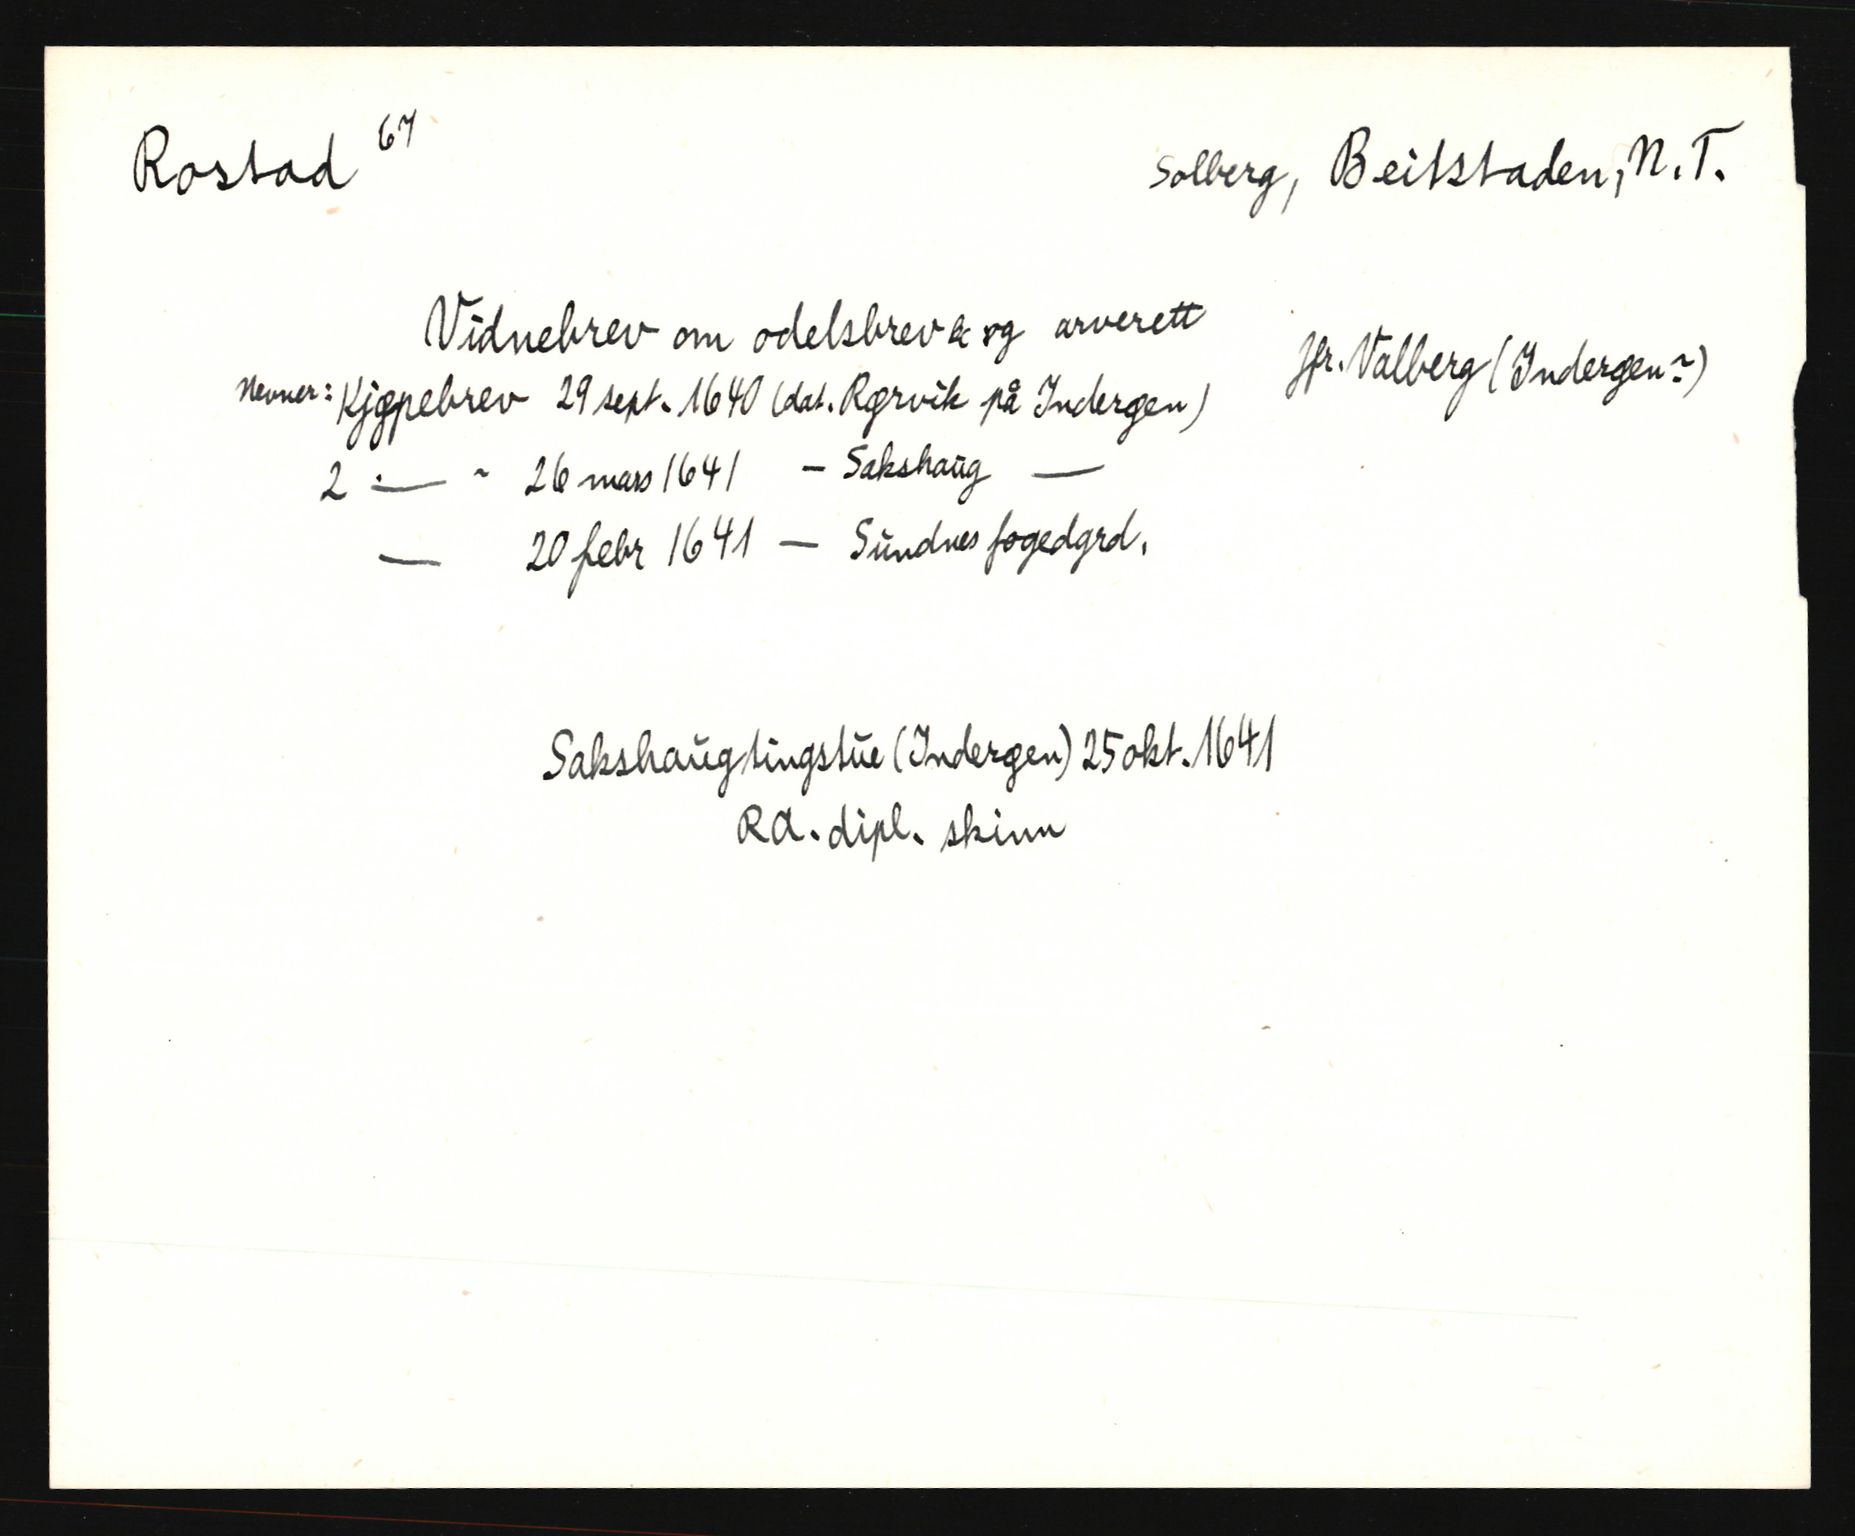 Rostad 67
Solberg, Beitstaden, N.T.
Vidnebrev om odelsbrev & og arverett
jfr. Valberg (Inderøen?)
Nevner: Kjøpebrev 29 sept. 1640 (dat. Rørvik på Inderøen)
2 — " 26 mars 1641 — Sakshaug —
— 20 febr 1641 — Sundnes fogedgrd.
Sakshaug tingstue (Inderøen) 25 okt. 1641
RA. dipl. skinn